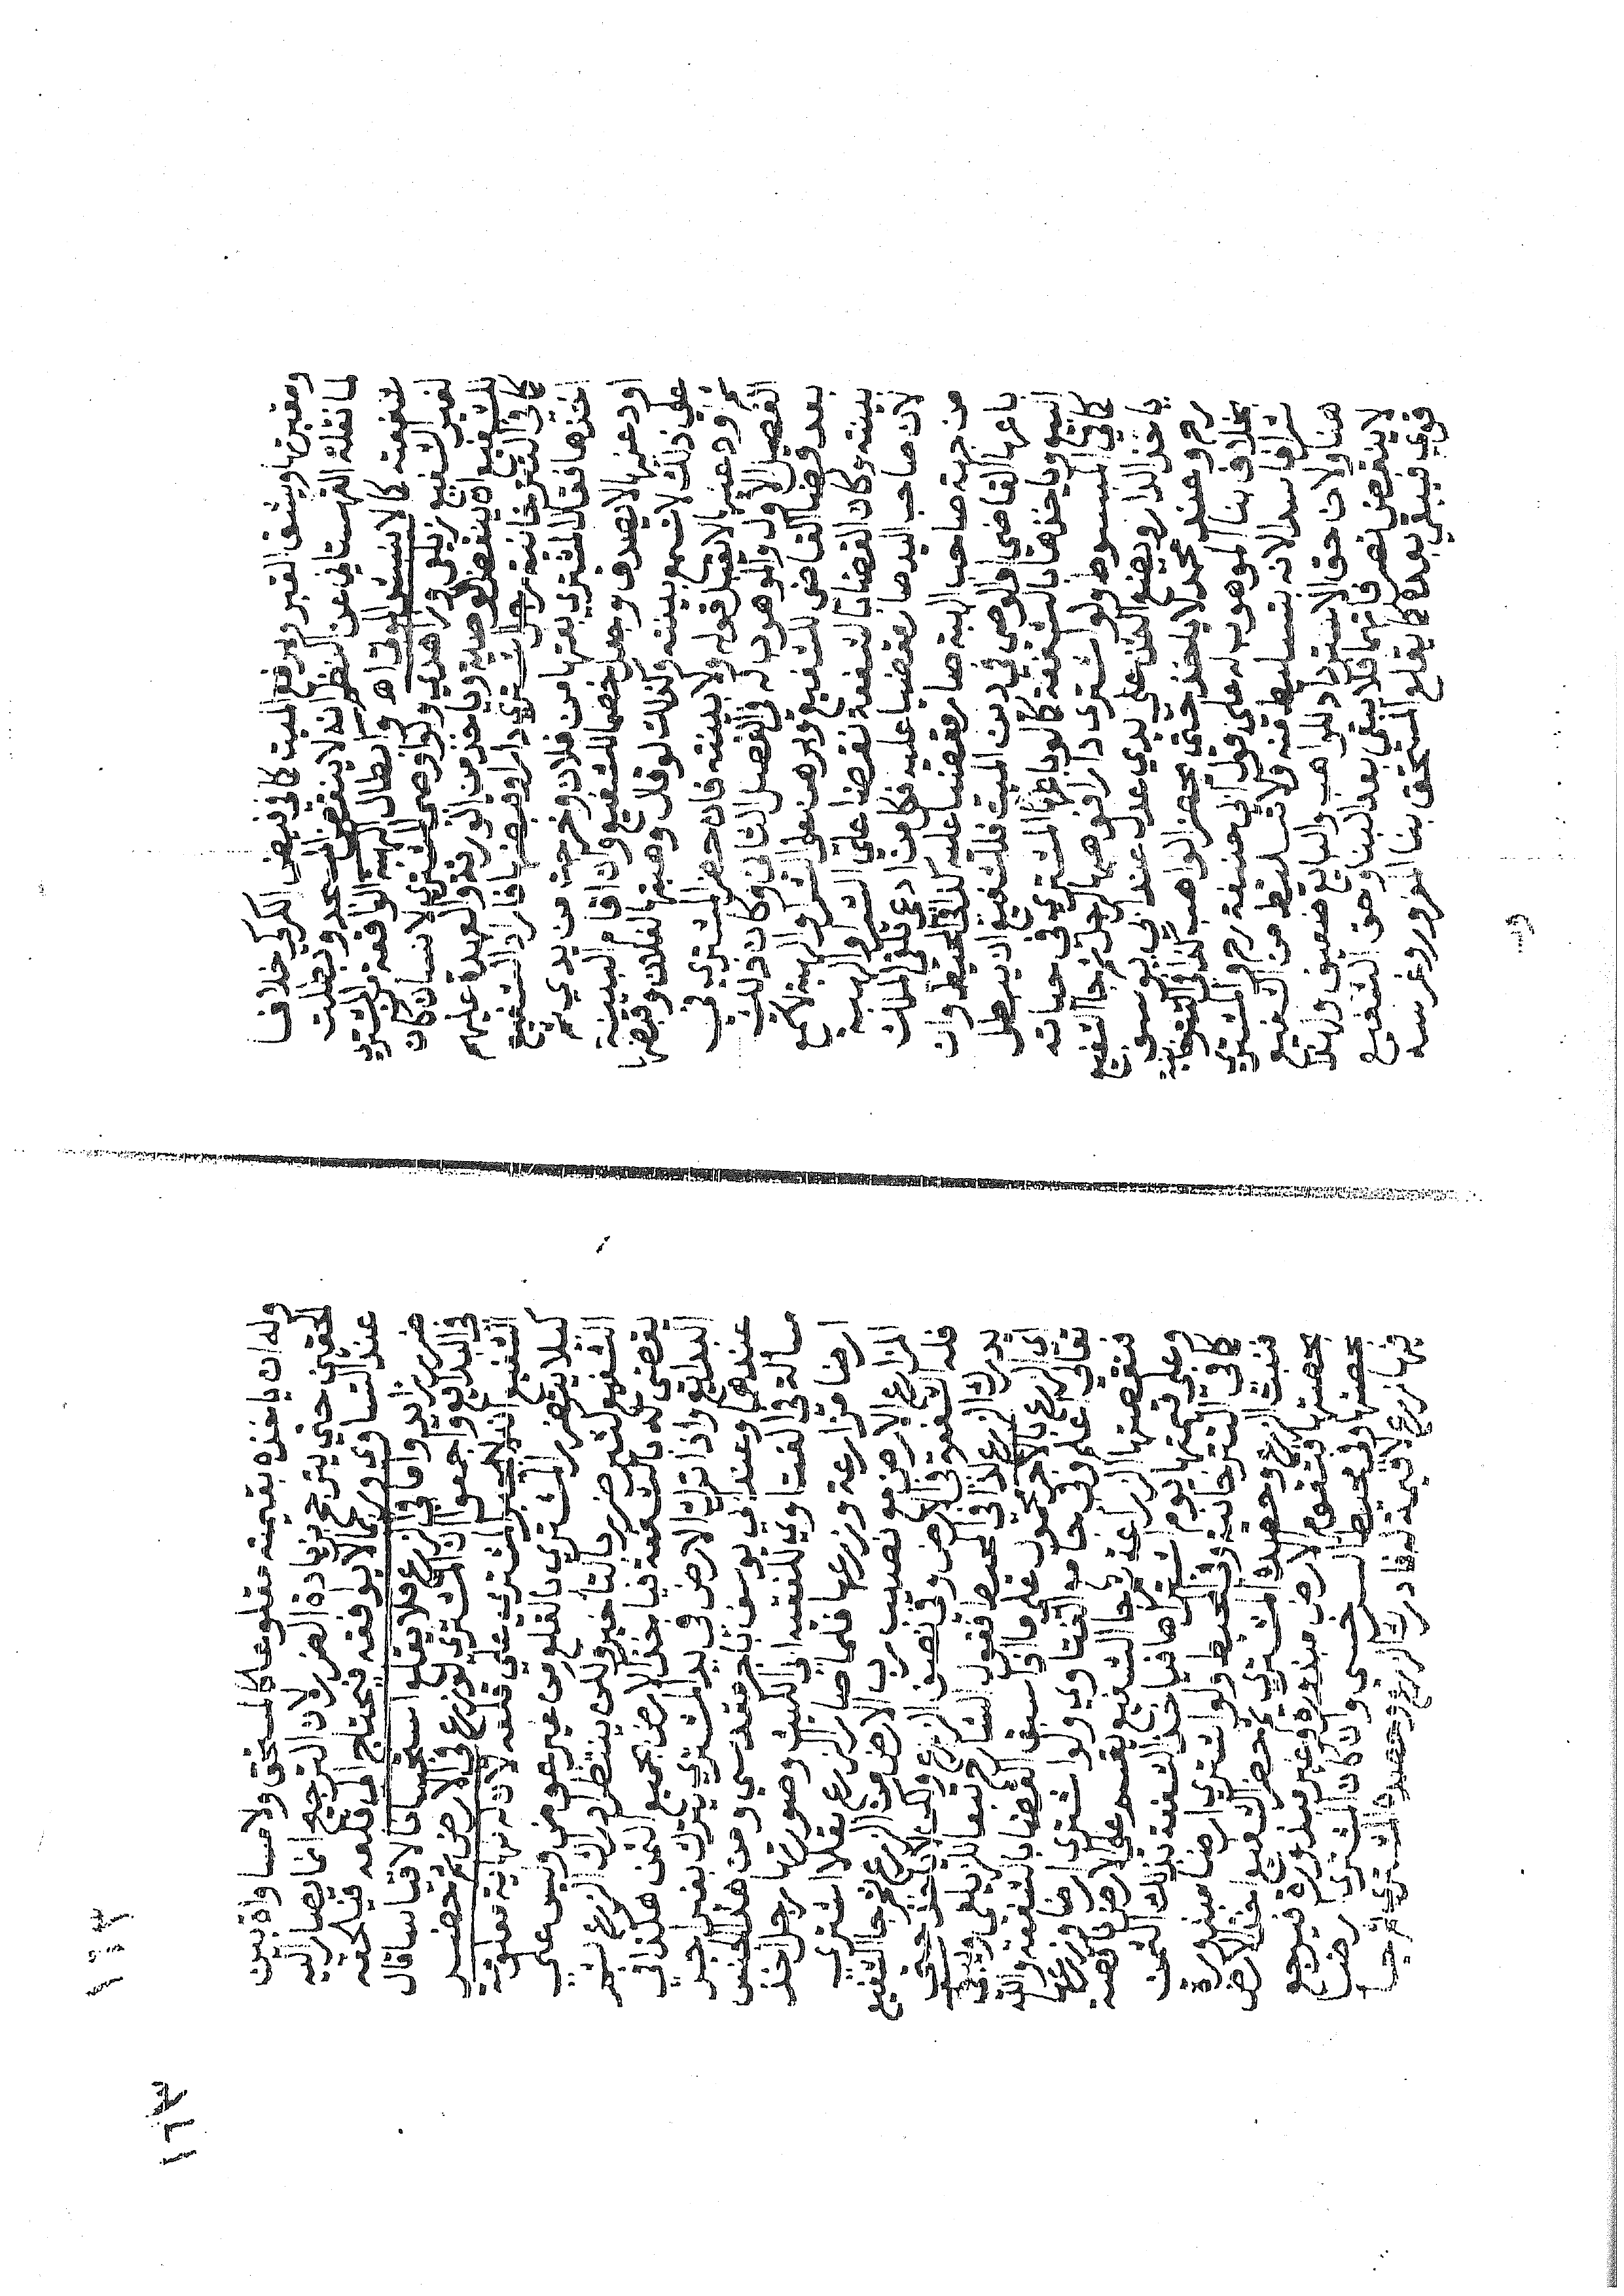 ومقبرتها وينبش القبر ويرفع الميت كما في فيض الكركي خلافا
لما نقله القهستاني عن النظم انه لا ينقض المسجد وبطلت
لغير الشفيع زيلعي وزاهدي ولو اوصى المشتري لانسان كان
للشفيع ان ينقض الوصية وياخذ من الورثة والعهدة عليهم
كما في التترخانية رجل اشترى دارا وقبضها فاراد الشفيع
اخذها فقال المشتري بعتها من فلان وخرجت من يدي ثم
اودعنيها لا يصدق وجعل خصما للشفيع وان اقام البينة
على ذلك لا تسمع بينته وكذلك لو قال وهبتها لفلان وقبضها
ثم اودعنيها لا يقبل قوله ولا بينته فان حضر المشتري في
الفصل الاول والموهوب له في الفصل الثاني وكان ذلك
بعد قضا القاضي للشفيع وبرهن على الشرا والهبة لا تسمع
بينته وكان القضا بالشفعة نقضا على الشرا والهبة
لان صاحب اليد صار مقضيا عليه فكل من ادعى تلقي الملك
من جهة صاحب اليد صار مقضيا عليه كذا في المحيط وان
باعها القاضي او الوصي في دين الميت فللشفيع ان يبطل
البيع وياخذها بالشفعة كما لو باعها المشتري في حياته
كما في المبسوط ولو اشترى دارا فوهبها لرجل ثم جا الشفيع
ياخذ الدار ويضع الثمن على يدي عدل عند ابي يوسف
رح وعند محمد لا ياخذ حتى يحضر الواهب كذا في التترخانية
بخلاف بنا الموهوب له على قول ابي حنيفة رح والمشتري
شرا فاسدا لانه بتسليط منه ولا تسليط من الشفيع
هنا ولان حق الاسترداد للواهب والبايع ضعيف ولهذا
لا ينقض تصرفاتهما فلا يبقى بعد البنا وحق الشفيع
قوي فيبقى بعده كما يقلع المستحق بنا المغرور وغرسه
وله
وله ان ياخذه بقيمته مقلوعا كالمستحق ولا مساواة بين
الحقين حتى يترجح بزيادة الضرر لان الترجيح انما يصار اليه
عند التساوي وربما لا يوافقه فيحتاج الى قلعه فيلحقه
ضرر زايد واما في الزرع فلا يقلع استحسانا لا قياسا قال
في البدايع واجمعوا ان المشتري لو زرع في الارض ثم حضر
الشفيع انه لا يجبر المشتري على قلعه لان له نهاية معلومة
ليلا يتضرر المشتري بالقلع من غير عوض وليس على
الشفيع كثير ضرر بالتاخير ولكن ينتظر ادراك الزرع ثم
يقضى له بالشفعة فياخذ الارض بجميع الثمن هكذا في
البدايع واذا ترك الارض في يد المشتري يترك بغير اجر
عندهما وعند ابي يوسف باجر مقدسي ومن هذا الجنس
مسألة في الفتاوي للفقيه ابي الليث وصورتها رجل اخذ
ارضا مزارعة وزرعها فلما صار الزرع بقلا اشترى
المزارع الارض مع نصيب رب الارض من الزرع ثم جا الشفيع
فله الشفعة في الارض وفي نصف الزرع ولكن لا ياخذ حتى
يدرك الزرع كذا في المحيط فقول الشارح تبعا للزيلعي ويبقى
اي الزرع بالاجر محمول على ما اذا سبق القضا بالشفعة والله
تعالى اعلم وفي جامع الفتاوي ولو اشترى ارضا وزرعها
فنقصتها الزراعة ثم جا الشفيع يقسم على الارض ناقصة
وعلى قيمتها يوم اشتراها فياخذ الشفعة بذلك الثمن
كما في التترخانية وفي المحيط ولو اشترى ارضا مبذورة
فنبت الزرع وحصده المشتري ثم حضر الشفيع اخذ الارض
بحصتها فتقوم الارض مبذورة وغير مبذورة فيرجع
بحصتها وفي محيط السرخسي وان كان اشترى ارضا
فيها زرع لا قيمة له فادرك الزرع وحصده المشتري ثم جا
١٦٣